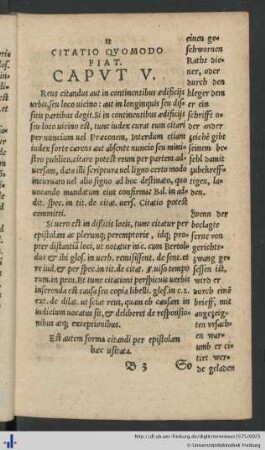 CITATIO QVOMODO
FIAT.
CAPVT V.
Reus citandus aut in continentibus ædificijs
urbis, seu loco uicino: aut in longinquis seu dis
sitis partibus degit. Si in continentibus ædificijs
seu loco uicino est, tunc iudex curat eum citari
per nuncium uel Præconem, Interdum etiam
iudex forte carens aut absente nuncio seu mini
stro publico, citare potest reum per partem ad-
uersam, data illi scriptura uel ligno certo modo
incuruato uel alio signo ad hoc destinato, quo
euocando mandatum eius confirmat Bal. in
dit. spec. in tit. de citat. uers. Citatio potest
committi.
Si uero est in dissitis locis, tunc citatur per
epistolam ac plerunq; peremptorie, idq; pro-
per distantiã loci, ut notatur in c. cum Bertol
dus & ibi glos. in uerb. remisissent. de sent. et
re iud. & per spec. in tit. de citat. uiso tempo
rum. in prin. Et tunc citationi perspicuis uerbis
inserenda est causa seu copia libelli. glos. in c. 2.
ext. de dilat. ut sciat reus, quam ob causam in
iudicium uocatus sit, & deliberet de responsio
nibus atq; exceptionibus.
Est autem forma citandi per epistolam
hæc usitata.
B 3 So
einen ge-
schwornen
Raths die-
ner, oder
durch den
kleger den
er ein
schrifft o-
der onder
seinem
befehl
damit
tigen, la-
den.
Wenn der
beclagte
ferne von
gerichts-
zwang ge-
sessen ist,
wird er
durch eine
brieff, mit
anzeig-
ten vrsach-
en war-
umb er ci-
tirt wer-
de geladen
http://dl.ub.uni-freiburg.de/diglit/terremeus1575/0025
© Universitätsbibliothek Freiburg